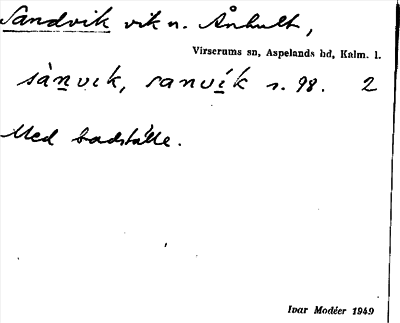 Sandvik vik n. Ånhult,
Virserums sn, Aspelands hd, Kalm. l.
sàn̲vik, sanví̲k s. 98. 2
Med badställe.
Ivar Modéer 1949